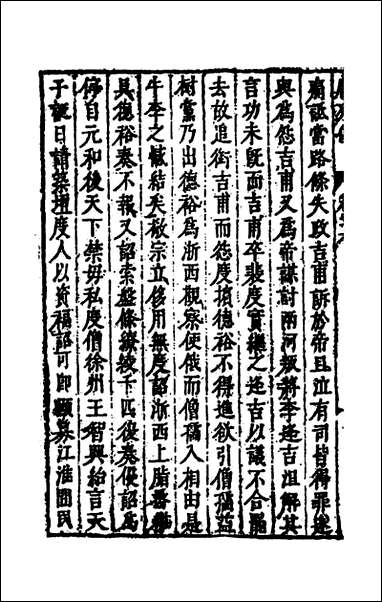 痛詆當路條失政吉甫訴於帝且泣有司皆得罪遂
與為怨吉甫又為帝謀討兩河叛將李逢吉沮解其
言功未旣而吉甫卒裴度實繼之逢吉以議不合罷
去故追銜吉甫而怨度擯德裕不得進欲引僧孺益
樹黨乃出德裕為浙西觀察使俄而僧孺入相由是
牛李之憾結矣敬宗立侈用無度詔浙西上脂
具德裕奏不報又詔索盤絛繚綾千匹復奏優詔為
停自元和後天下禁毋私度僧徐州王智興紿言天
子誕日請築壇度人以資福詔可即顯募江淮間民